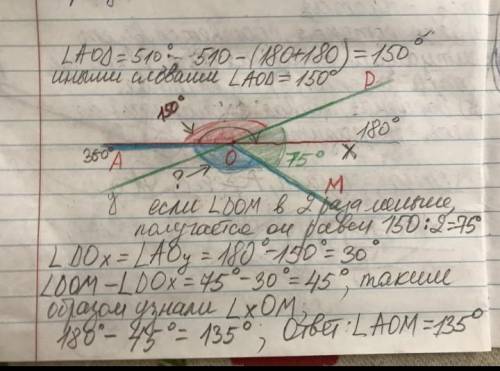 ∠AOD = 510° - 510 - (180+180) = 150°
иными словами ∠AOD = 150°
150°
D
180°
360°
A
O
75°
X
?
M
y
если ∠DOM в 2 раза меньше,
получается он равен 150:2=75°
∠DOx = ∠AOy = 180° - 150° = 30°
∠DOM - ∠DOx = 75° - 30° = 45°, таким
образом узнали ∠xOM;
180° - 45° = 135° ; Ответ: ∠AOM = 135°